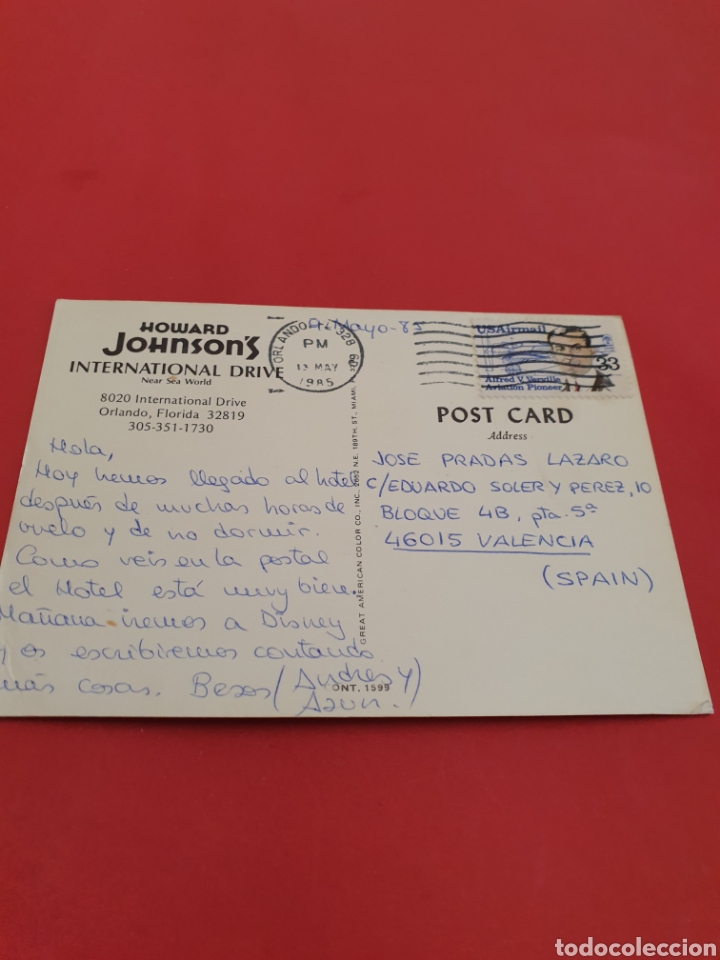 HOWARD
JOHNSON'S
INTERNATIONAL DRIVE
Near Sea World
8020 International Drive
Orlando, Florida 32819
305-351-1730
Mayo-85
ORLANDO, FL 328
PM
13 MAY
1985
USAirmail
33
Alfred V. Verville
Aviation Pioneer
POST CARD
Address
Hola,
Hoy hemos llegado al hotel
después de muchas horas de
vuelo y de no dormir.
Como veis en la postal
el Hotel está muy bien.
Mañana iremos a Disney
y os escribiremos contando
más cosas. Besos (Andres y
Azun.)
GREAT AMERICAN COLOR CO., INC., 2662 N.E. 189TH. ST., MIAMI,
ONT. 1599
JOSE PRADAS LAZARO
C/EDUARDO SOLER Y PEREZ, 10
BLOQUE 4B, pta. 5ª
46015 VALENCIA
(SPAIN)
todocoleccion